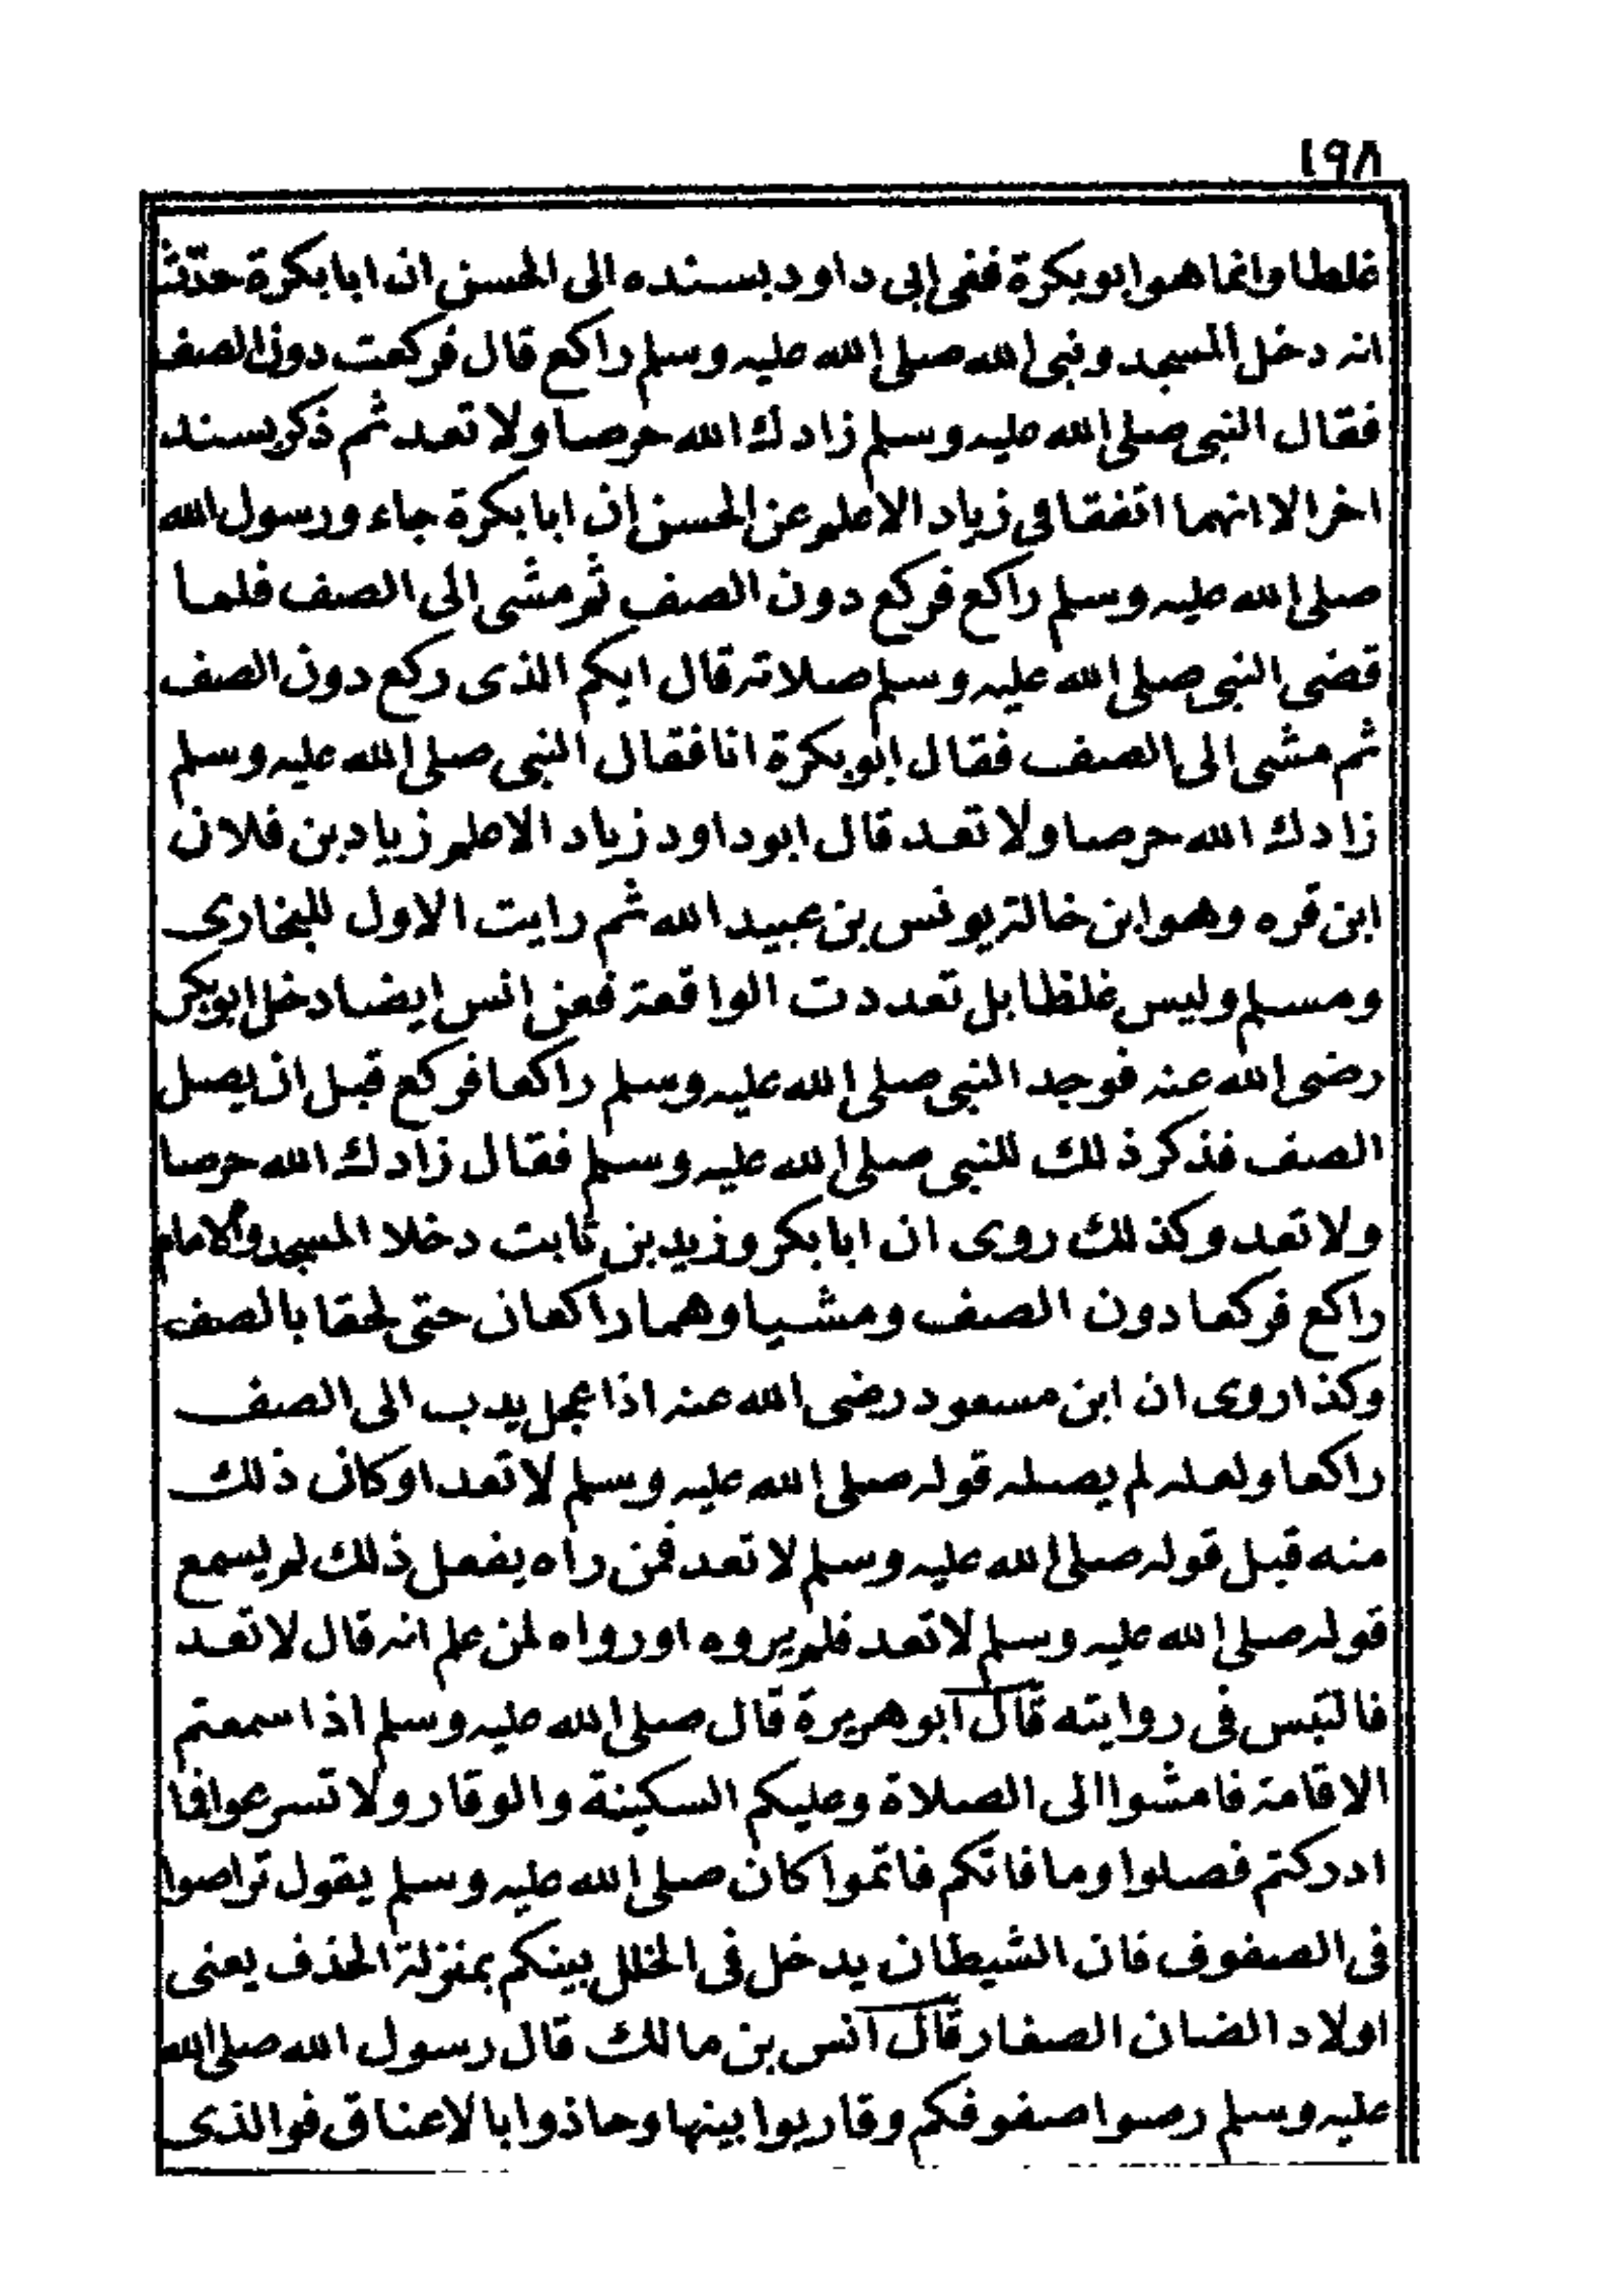 ١٩٨
غلطا وانما هو ابو بكرة ففى ابى داود بسنده الى الحسن ان ابا بكرة حدّث
انه دخل المسجد ونبى الله صلى الله عليه وسلم راكع قال فركعت دون الصف
فقال النبى صلى الله عليه وسلم زادك الله حرصا ولا تعد ثم ذكر بسند
اخر الا انهما اتفقا فى زياد الاعلم عن الحسن ان ابا بكرة جاء ورسول الله
صلى الله عليه وسلم راكع فركع دون الصف ثم مشى الى الصف فلما
قضى النبى صلى الله عليه وسلم صلاته قال ايكم الذى ركع دون الصف
ثم مشى الى الصف فقال ابو بكرة انا فقال النبى صلى الله عليه وسلم
زادك الله حرصا ولا تعد قال ابو داود زياد الاعلم زياد بن فلان
ابن قره وهو ابن خالة يونس بن عبيد الله ثم رايت الاول للبخارى
ومسلم وليس غلطا بل تعددت الواقعة فعن انس ايضا دخل ابو بكر
رضى الله عنه فوجد النبى صلى الله عليه وسلم راكعا فركع قبل ان يصل
الصف فذكر ذلك للنبى صلى الله عليه وسلم فقال زادك الله حرصا
ولا تعد وكذلك روى ان ابا بكر وزيد بن ثابت دخلا المسجد والامام
راكع فركعا دون الصف ومشيا وهما راكعان حتى لحقا بالصف
وكذا روى ان ابن مسعود رضى الله عنه اذا عجل يدب الى الصف
راكعا ولعله لم يصله قوله صلى الله عليه وسلم لا تعد او كان ذلك
منه قبل قوله صلى الله عليه وسلم لا تعد فمن راه يفعل ذلك لم يسمع
قوله صلى الله عليه وسلم لا تعد فلم يروه او رواه لمن علم انه قال لا تعد
فالتبس فى روايته قال ابو هريرة قال صلى الله عليه وسلم اذا سمعتم
الاقامة فامشوا الى الصلاة وعليكم السكينة والوقار ولا تسرعوا فما
ادركتم فصلوا وما فاتكم فاتموا كان صلى الله عليه وسلم يقول تراصوا
فى الصفوف فان الشيطان يدخل فى الخلل بينكم بمنزلة الحذف يعنى
اولاد الضان الصغار قال انس بن مالك قال رسول الله صلى الله
عليه وسلم رصوا صفوفكم وقاربوا بينها وحاذوا بالاعناق فوالذى